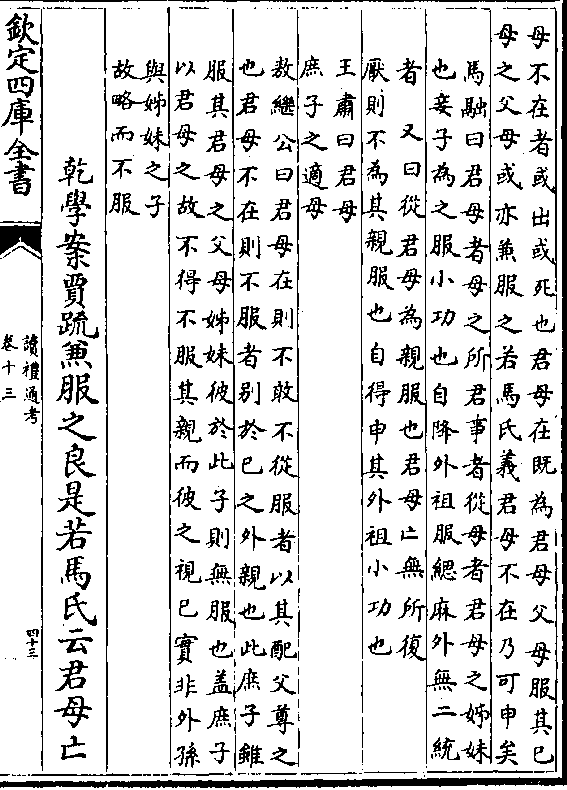 母不在者或出或死也君母在既為君母父母服其己
母之父母或亦兼服之若馬氏義君母不在乃可申矣
馬融曰君母者母之所君事者從母者君母之姊妹
也妾子為之服小功也自降外祖服緦麻外無二統
者　又曰從君母為親服也君母亡無所復
厭則不為其親服也自得申其外祖小功也
王肅曰君母
庶子之適母
敖繼公曰君母在則不敢不從服者以其配父尊之
也君母不在則不服者别於己之外親也此庶子雖
服其君母之父母姊妹彼於此子則無服也盖庶子
以君母之故不得不服其親而彼之視已實非外孫
與姊妹之子
故略而不服
乾學案賈疏兼服之良是若馬氏云君母亡
欽定四庫全書
讀禮通考
卷十三
四十三